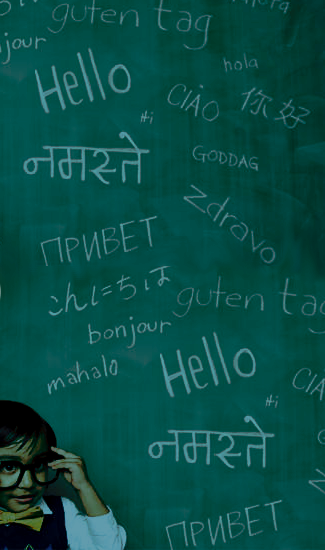 guten tag
jour
Hello
hola
CIAO
你好
Hi
नमस्ते
GODDAG
zdravo
ПРИВЕТ
こんにちは
guten tag
bonjour
mahalo
Hello
CIA
Hi
नमस्ते
ПРИВЕТ